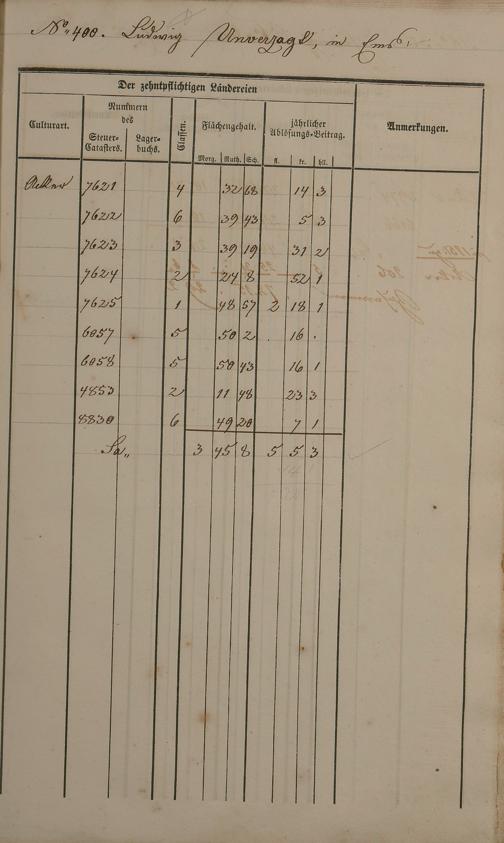 No. 400. Ludwig Unverzagt, in Ems.
Der zehntpflichtigen Ländereien
Culturart. Nummern des Steuer-Catasters. Lager-buchs. Classen. Flächengehalt. Morg. Ruth. Sch. jährlicher Ablösungs-Beitrag. fl. kr. hll. Anmerkungen.
Acker 7621 4 32 68 14 3
7622 6 39 43 5 3
7623 3 39 19 31 2
7624 2 24 8 52 1
7625 1 48 57 2 18 1
6057 5 50 2 . 16 .
6058 5 50 43 16 1
4853 2 11 48 23 3
8830 6 49 20 7 1
Sa,, 3 45 8 5 5 3